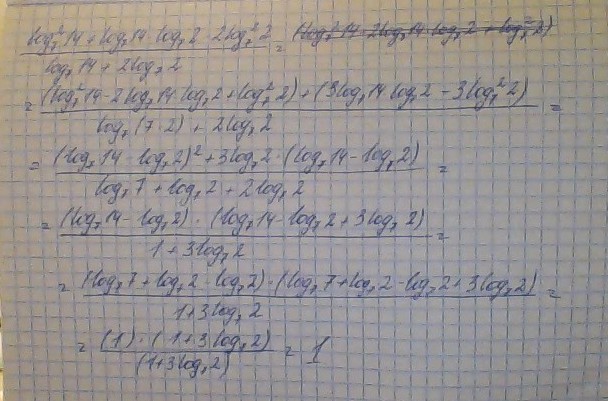 (log₇²14 + log₇14 log₇2 - 2log₇²2) / (log₇14 + 2log₇2) =
= ((log₇²14 - 2log₇14 log₇2 + log₇²2) + (3log₇14 log₇2 - 3log₇²2)) / (log₇(7·2) + 2log₇2) =
= ((log₇14 - log₇2)² + 3log₇2 · (log₇14 - log₇2)) / (log₇7 + log₇2 + 2log₇2) =
= ((log₇14 - log₇2) · (log₇14 - log₇2 + 3log₇2)) / (1 + 3log₇2) =
= ((log₇7 + log₇2 - log₇2) · (log₇7 + log₇2 - log₇2 + 3log₇2)) / (1 + 3log₇2) =
= ((1) · (1 + 3log₇2)) / (1 + 3log₇2) = 1